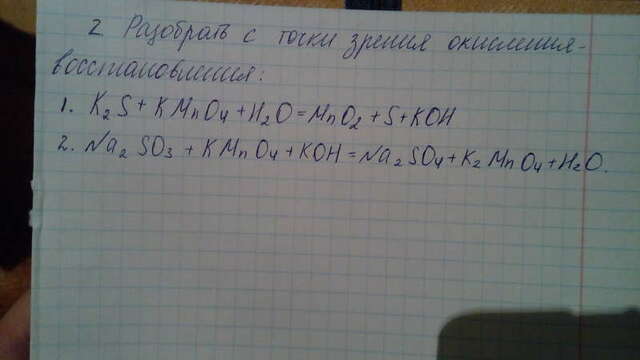 2 Разобрать с точки зрения окисления-
восстановления:
1. K₂S + KMnO₄ + H₂O = MnO₂ + S + KOH
2. Na₂SO₃ + KMnO₄ + KOH = Na₂SO₄ + K₂MnO₄ + H₂O.